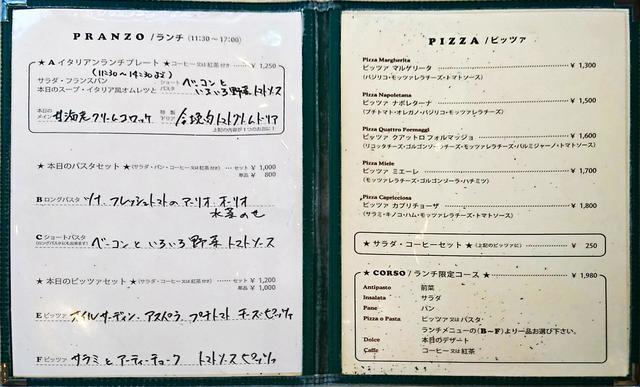 PRANZO /ランチ (11:30～17:00)
★ A イタリアンランチプレート ★(コーヒー又は紅茶付き) ¥ 1,250
(11:30～14:30まで)
サラダ・フランスパン
本日のスープ・イタリア風オムレツと
ショートパスタ ベーコンといろいろ野菜トマトソース
本日のメイン 甘海老クリームコロッケ
特製ドリア 合挽肉トマトクリームドリア
上記の内容が1つのお皿に!
★ 本日のパスタセット ★(サラダ・パン・コーヒー又は紅茶付き) セット ¥ 1,000
単品 ¥ 800
B ロングパスタ ツナ、フレッシュトマトのアーリオ・オーリオ
水菜のせ
C ショートパスタ ベーコンといろいろ野菜 トマトソース
★ 本日のピッツァセット ★(サラダ・コーヒー又は紅茶付き) セット ¥ 1,200
単品 ¥ 1,000
E ピッツァ オイルサーディン アスパラ プチトマト チーズピッツァ
F ピッツァ サラミとアーティチョーク トマトソースピッツァ
PIZZA /ピッツァ
Pizza Margherita
ピッツァ マルゲリータ ¥ 1,300
(バジリコ・モッツァレラチーズ・トマトソース)
Pizza Napoletana
ピッツァ ナポレターナ ¥ 1,500
(プチトマト・オレガノ・バジリコ・モッツァレラチーズ)
Pizza Quattro Formaggi
ピッツァ クアットロ フォルマッジョ ¥ 1,600
(リコッタチーズ・ゴルゴンゾーラチーズ・モッツァレラチーズ・パルミジャーノ・トマトソース)
Pizza Miele
ピッツァ ミエーレ ¥ 1,700
(モッツァレラチーズ・ゴルゴンゾーラ・ハチミツ)
Pizza Capricciosa
ピッツァ カプリチョーザ ¥ 1,800
(サラミ・キノコ・ハム・モッツァレラチーズ・トマトソース)
★ サラダ・コーヒーセット ★(上記のピッツァに) ¥ 250
★ CORSO /ランチ限定コース ★ ¥ 1,980
Antipasto 前菜
Insalata サラダ
Pane パン
Pizza o Pasta ピッツァ 又は パスタ
ランチメニューの(B～F)より一品お選び下さい。
Dolce 本日のデザート
Caffe コーヒー 又は 紅茶